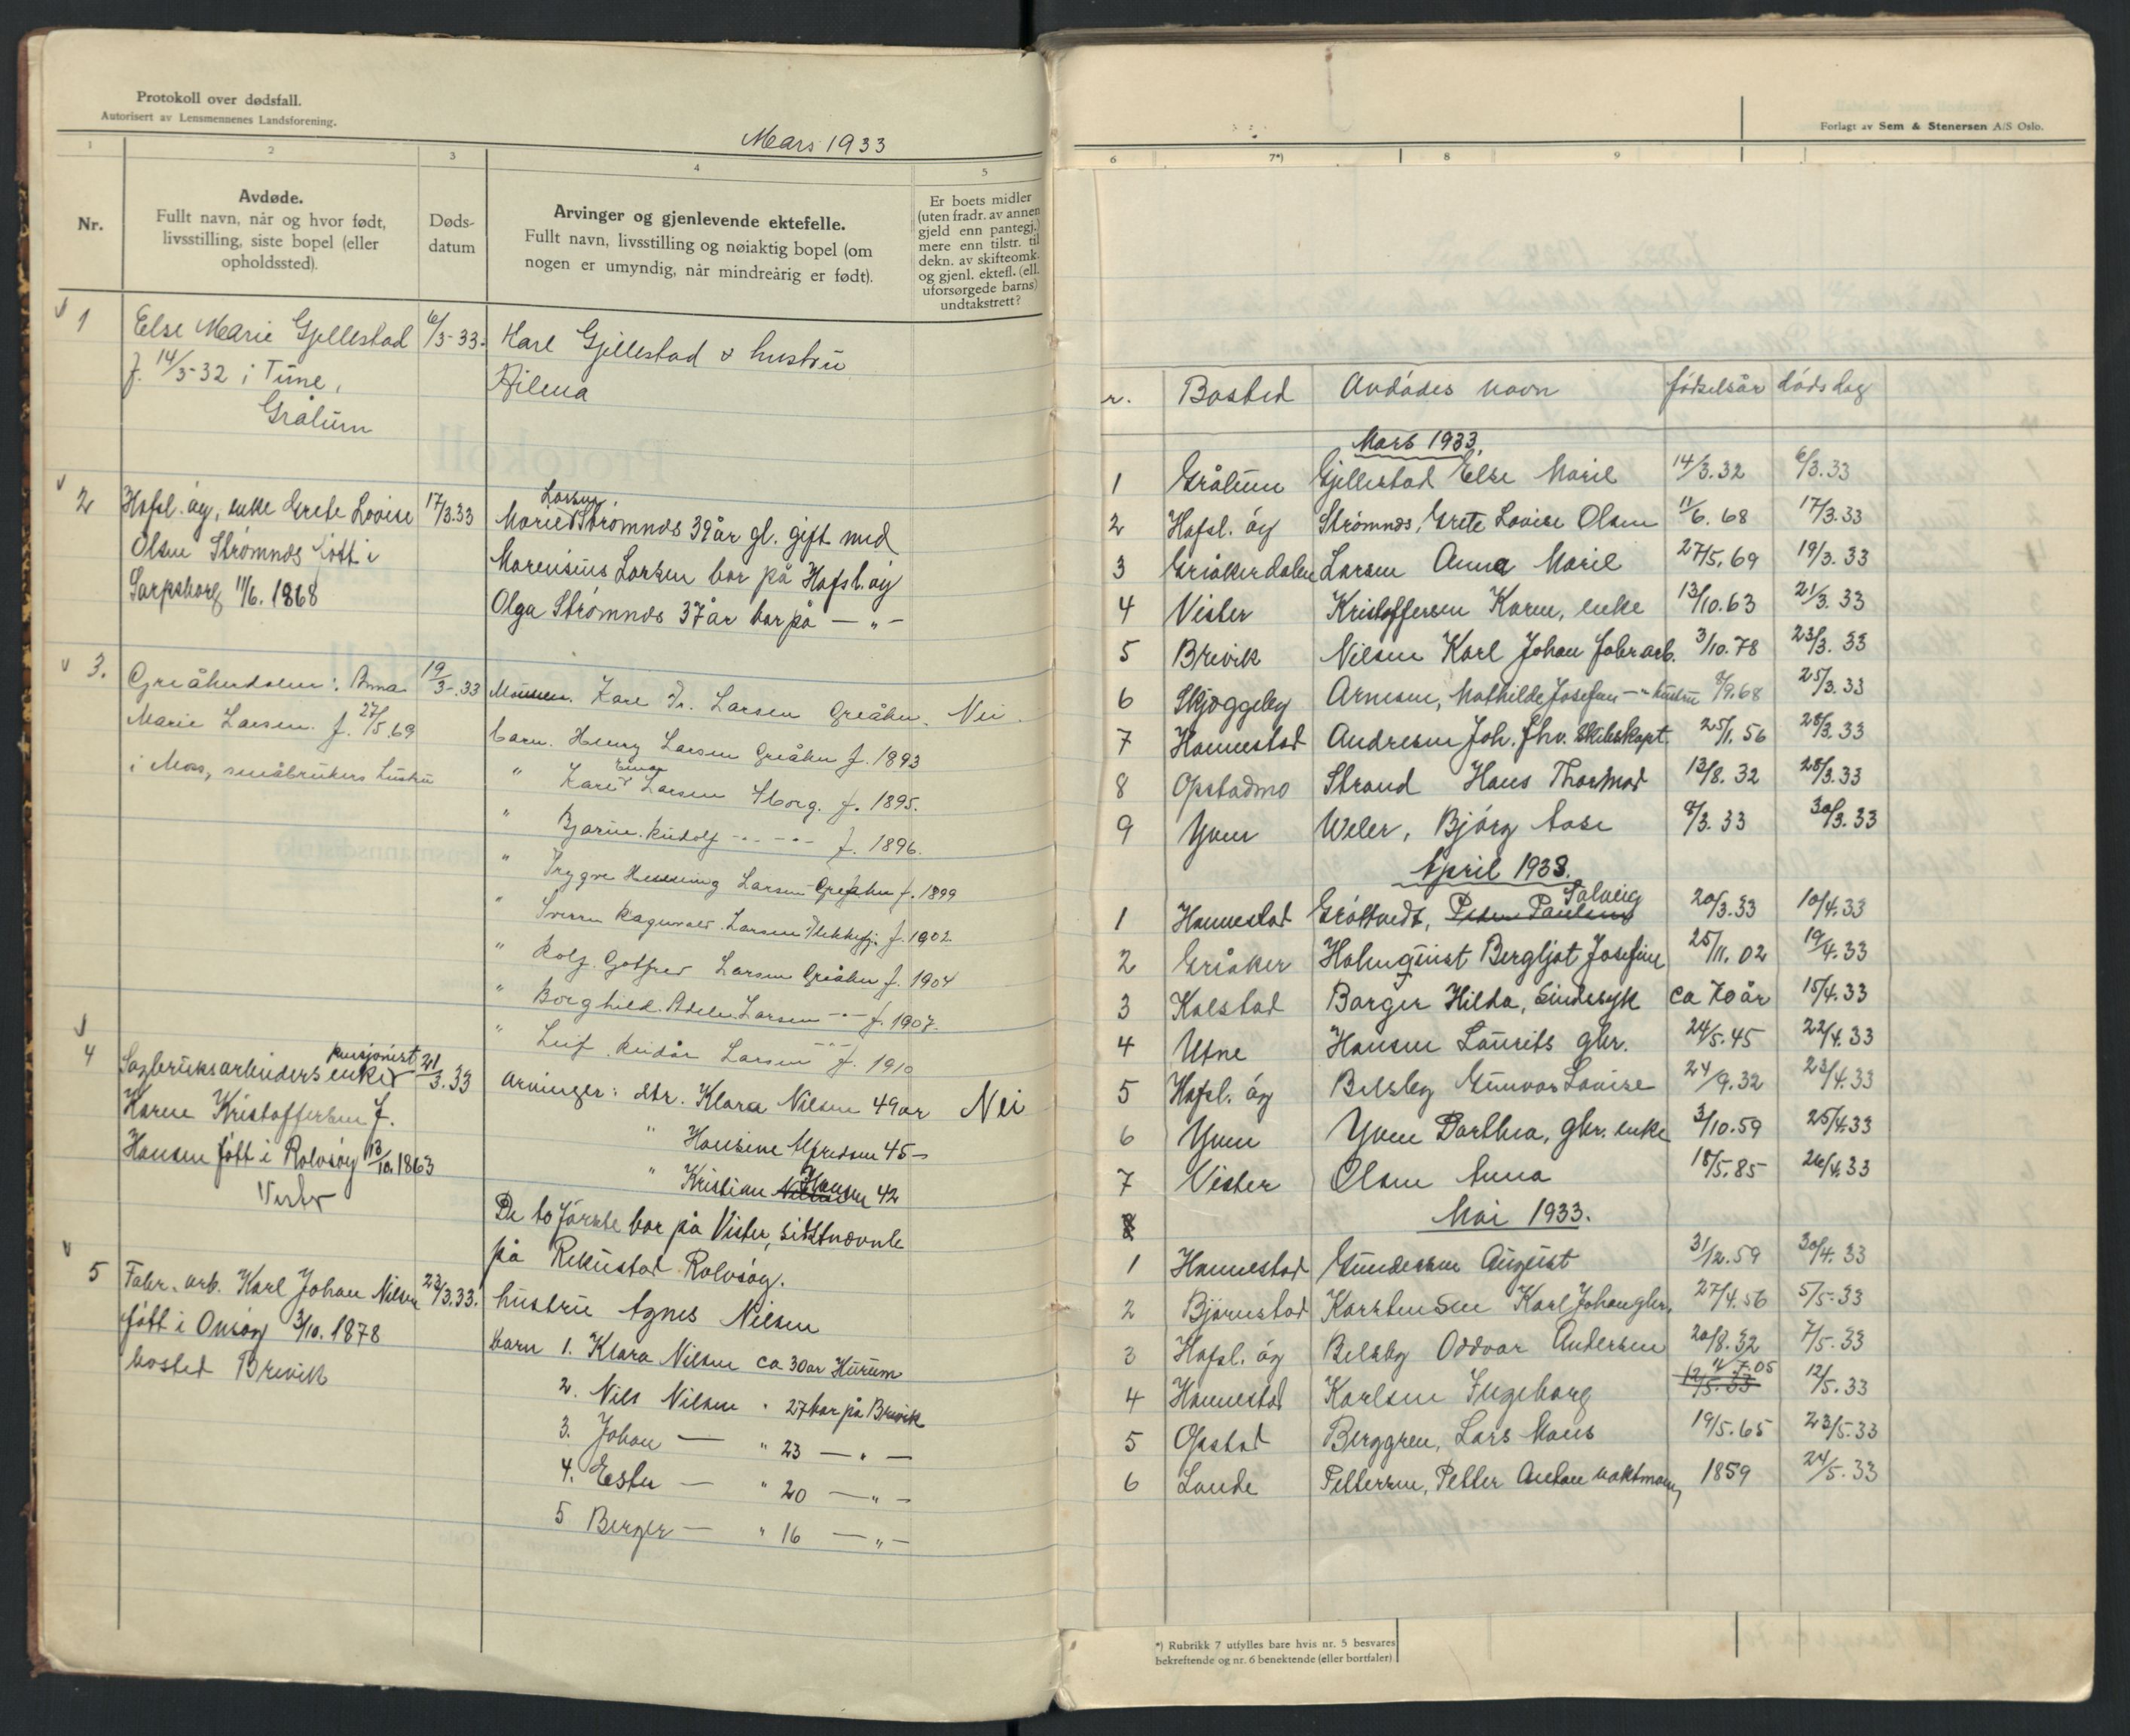 Protokoll over dødsfall.
Autorisert av Lensmennenes Landsforening.
Mars 1933
1 2 3 4 5
Nr.
Avdøde.
Fullt navn, når og hvor født,
livsstilling, siste bopel (eller
opholdssted).
Døds-
datum
Arvinger og gjenlevende ektefelle.
Fullt navn, livsstilling og nøiaktig bopel (om
nogen er umyndig, når mindreårig er født).
Er boets midler
(uten fradr. av annen
gjeld enn pantegj.)
mere enn tilstr. til
dekn. av skifteomk.
og gjenl. ektefl. (ell.
uforsørgede barns)
undtakstrett?
1 Else Marie Gjellestad 6/3-33. Karl Gjellestad & hustru
f. 14/3-32 i Tune,
Grålum
2 Hafsl. øy, enke Grete Lovise 17/3.33
Olsen Strømnes født i
Sarpsborg 11/6. 1868
Larsen.
Marie Strømnes 39 år gl. gift med
Marensius Larsen bor på Hafsl. øy
Olga Strømnes 37 år bor på — " —
3. Greåkerdalen: Anna 19/3-33
Marie Larsen. f. 27/5.69
i Mos, småbrukers hustru
Mannen. Kare Fr. Larsen Greåker. Nei.
barn. Henry Larsen Greåker f. 1893
" Kare Einar Larsen Sborg. f. 1895.
" Bjarne Rudolf -"- -"- f. 1896.
" Trygve Henning Larsen Greåker f. 1899
" Sverre Ragnvald Larsen Flekkefj. f. 1902.
" Rolf Gotfred Larsen Greåker f. 1904
" Borghild Adele Larsen -"- f. 1907.
" Leif Reidar Larsen -"- f. 1910
4 Sagbruksarbeiders pensjonist enke 21/3.33
Karen Kristoffersen f.
Hansen født i Rolvsøy 13/10.1863
Vister
Arvinger: dtr. Klara Nilsen 49 år Nei
" Hansine Alfredsen 45 —
" Kristian Hansen 42
De to første bor på Vister, sistnevnte
på Rekustad Rolvsøy.
5 Fabr. arb. Karl Johan Nilsen 23/3.33.
født i Onsøy 3/10. 1878
bosted Brevik
hustru Agnes Nilsen
barn 1. Klara Nilsen ca 30 år Hurum
2. Nils Nilsen " 27 bor på Brevik
3. Johan — " 23 — " —
4. Ester — " 20 — " —
5 Berger — " 16 — " —
Forlagt av Sem & Stenersen A/S Oslo.
6 7*) 8 9
r. Bosted Avdødes navn fødselsår dødsdag
Mars 1933.
1 Grålum Gjellestad Else Marie 14/3.32 6/3.33
2 Hafsl. øy Strømnes, Grete Lovise Olsen 11/6. 68 17/3.33
3 Greåkerdalen Larsen Anna Marie 27/5.69 19/3.33
4 Vister Kristoffersen Karen, enke 13/10.63 21/3.33
5 Brevik Nilsen Karl Johan fabr arb. 3/10.78 23/3.33
6 Skjeggeby Arnesen, Mathilde Josefine -"- hustru 8/9.68 25/3.33
7 Hannestad Andresen Joh. fhv. Skibskapt. 25/1.56 28/3.33
8 Opstadmo Strand Hans Thormod 13/8.32 28/3.33
9 Yven Weler, Bjørg Aase 8/3.33 30/3.33
April 1933.
1 Hannestad Grøttvedt, Peder Paulsen Solveig 20/3.33 10/4.33
2 Greåker Holmquist Bergljot Josefine 25/11.02 19/4.33
3 Kalstad Borger Hilda, Sindssyk ca 70 år 15/4.33
4 Utne Hansen Laurits gbr. 24/5.45 22/4.33
5 Hafsl. øy Belsby Gunvor Lovise 24/9.32 23/4.33
6 Yven Yven Dorthea, gbr. enke 3/10.59 25/4.33
7 Vister Olsen Anna 18/5.85 26/4.33
8
Mai 1933.
1 Hannestad Gundersen August 31/12.59 30/4.33
2 Bjørnstad Karstensen Karl Johan gbr. 27/4.56 5/5-33
3 Hafsl. øy Belsby Oddvar Andersen 20/8.32 7/5.33
4 Hannestad Karlsen Ingeborg 12/5.33 11/7.05 12/5.33
5 Opstad Berggren, Lars Maus 19/5.65 23/5.33
6 Lande Pettersen, Petter Anton vaktmann 1859 24/5.33
*) Rubrikk 7 utfylles bare hvis nr. 5 besvares
bekreftende og nr. 6 benektende (eller bortfaler)